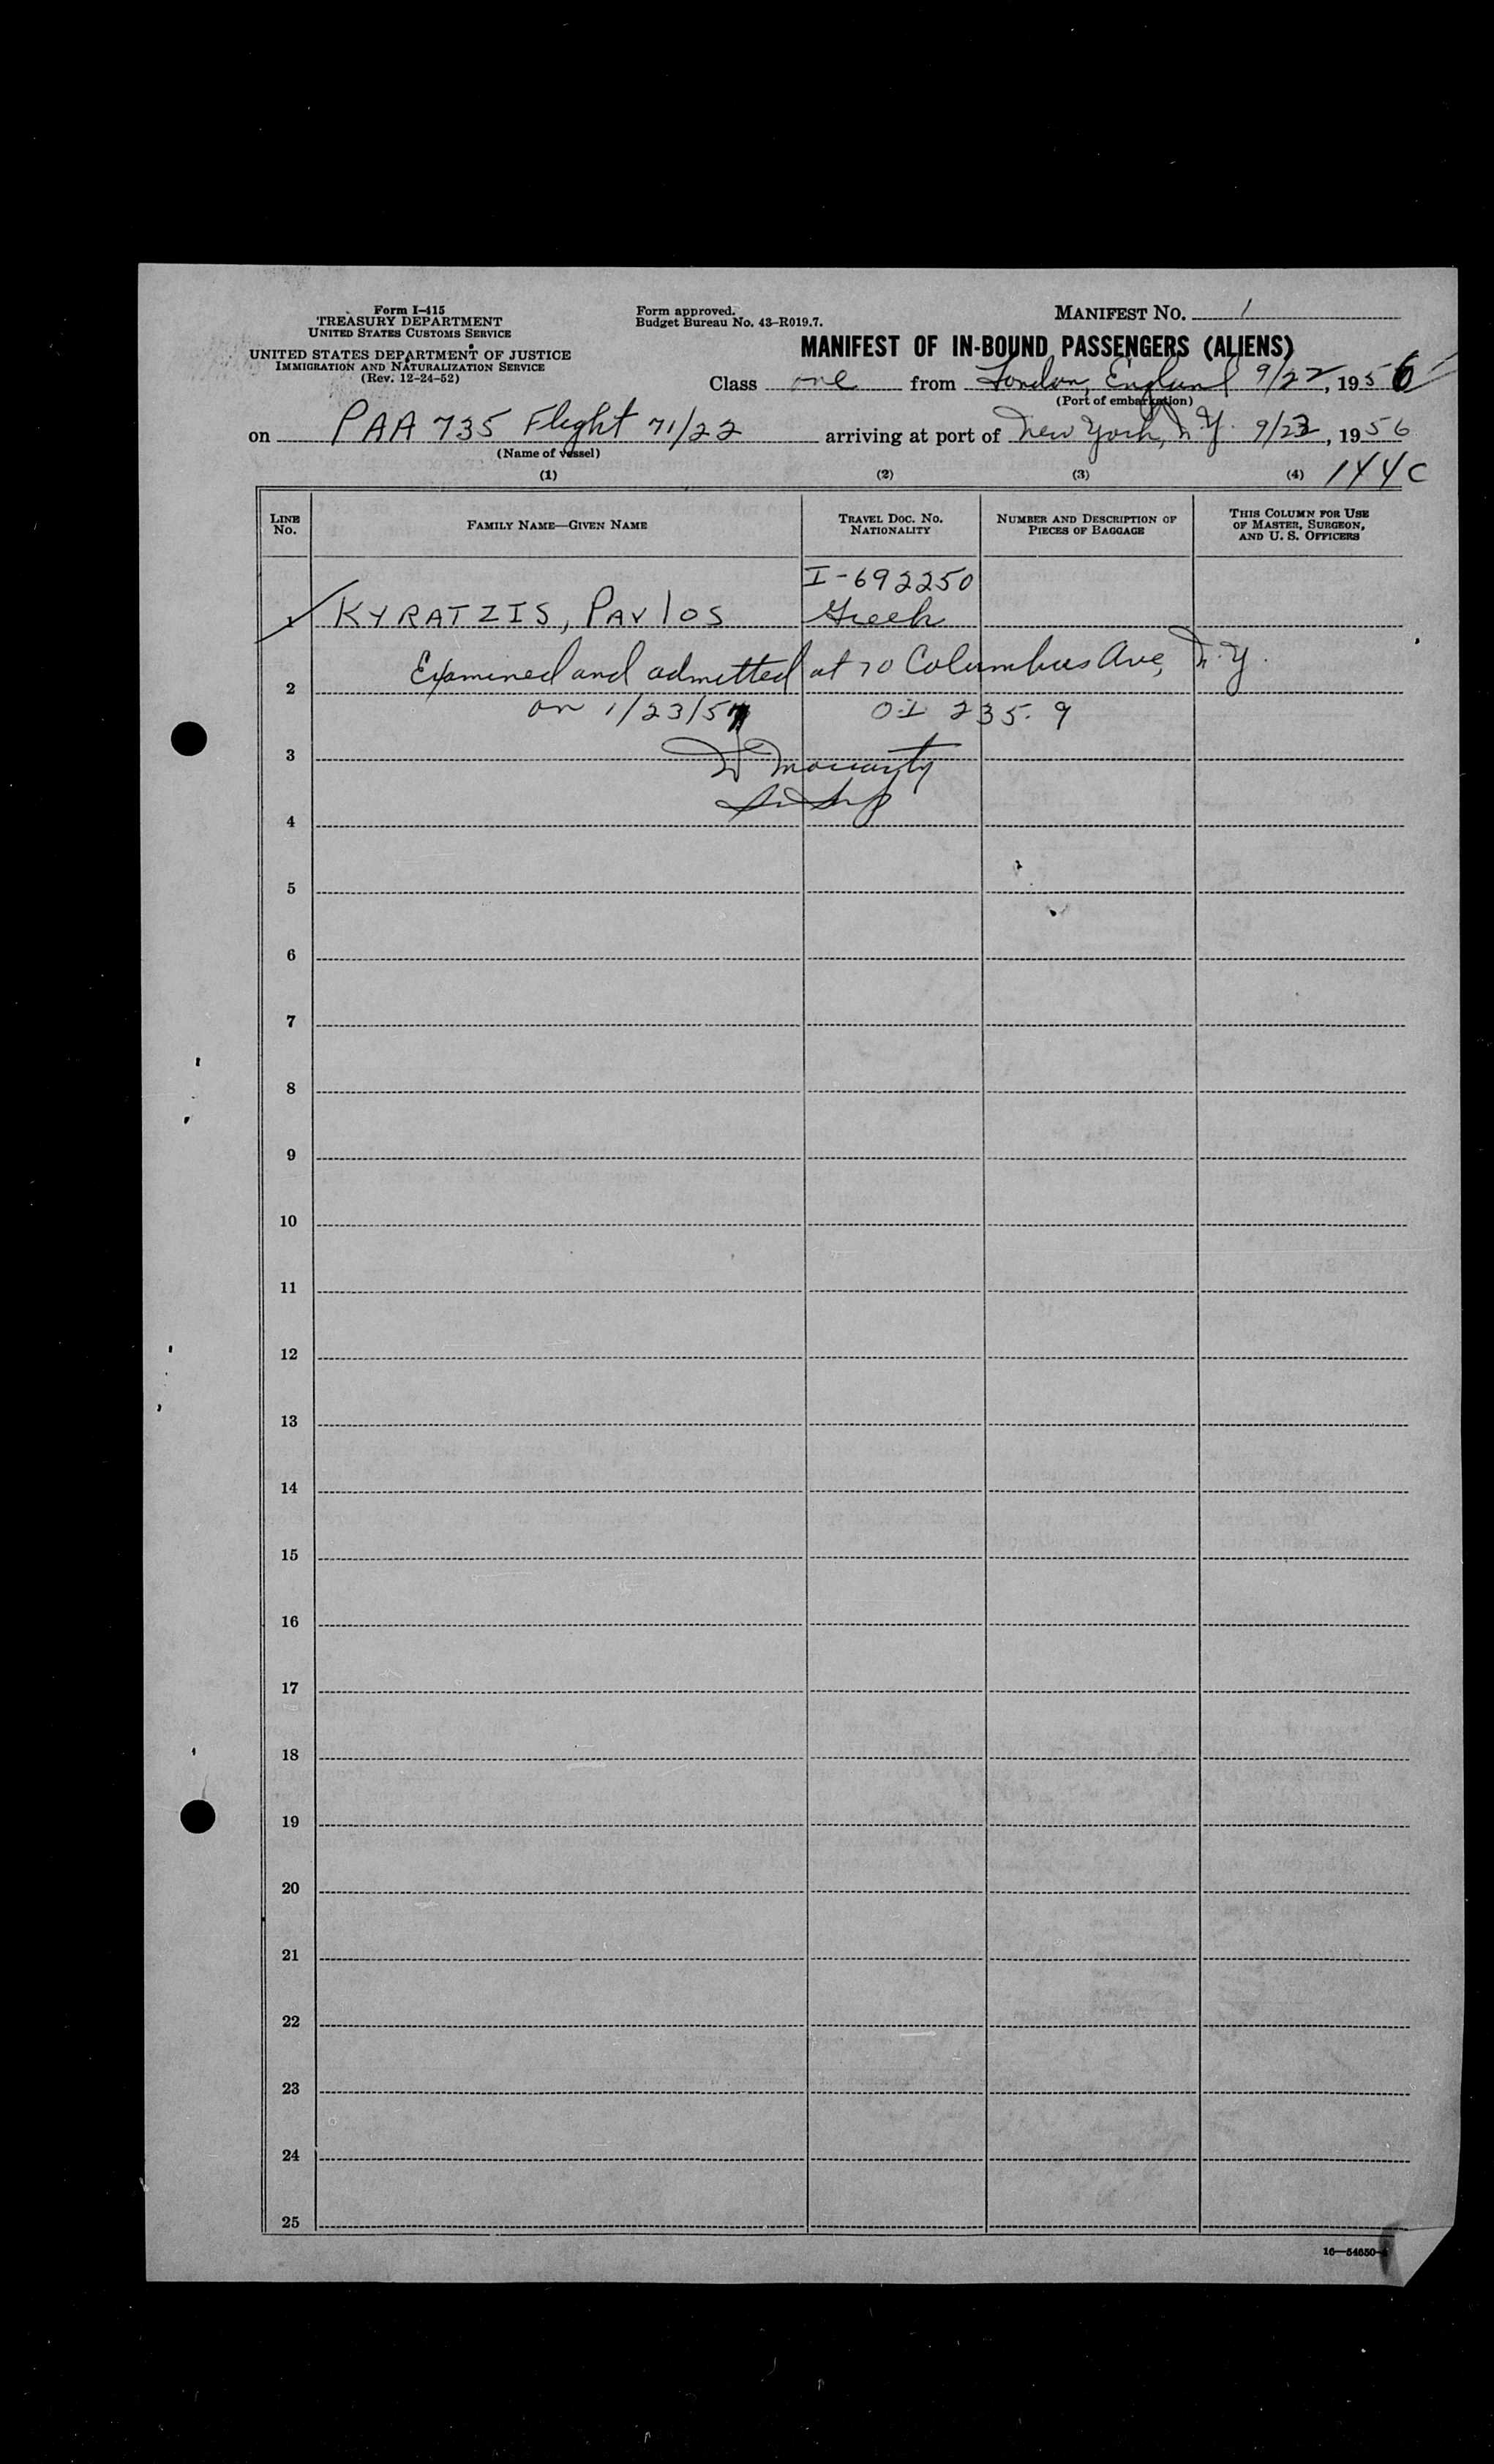 Form I-415
TREASURY DEPARTMENT
UNITED STATES CUSTOMS SERVICE
UNITED STATES DEPARTMENT OF JUSTICE
IMMIGRATION AND NATURALIZATION SERVICE
(Rev. 12-24-52)
Form approved.
Budget Bureau No. 43-R019.7.
MANIFEST No. 1
MANIFEST OF IN-BOUND PASSENGERS (ALIENS)
Class one from London, England 9/22, 1956
(Port of embarkation)
on PAA 735 Flight 71/22 arriving at port of New York, N.Y. 9/23, 1956
(Name of vessel)
(1) (2) (3) (4) 144C
LINE No. FAMILY NAME—GIVEN NAME TRAVEL DOC. No. NATIONALITY NUMBER AND DESCRIPTION OF PIECES OF BAGGAGE THIS COLUMN FOR USE OF MASTER, SURGEON, AND U. S. OFFICERS
I-692250
1 KYRATZIS, PAVLOS Greek
Examined and admitted at 70 Columbus Ave, N.Y.
2
on 1/23/57 OI 235.9
3 Moriarty
4
5
6
7
8
9
10
11
12
13
14
15
16
17
18
19
20
21
22
23
24
25
16—54650